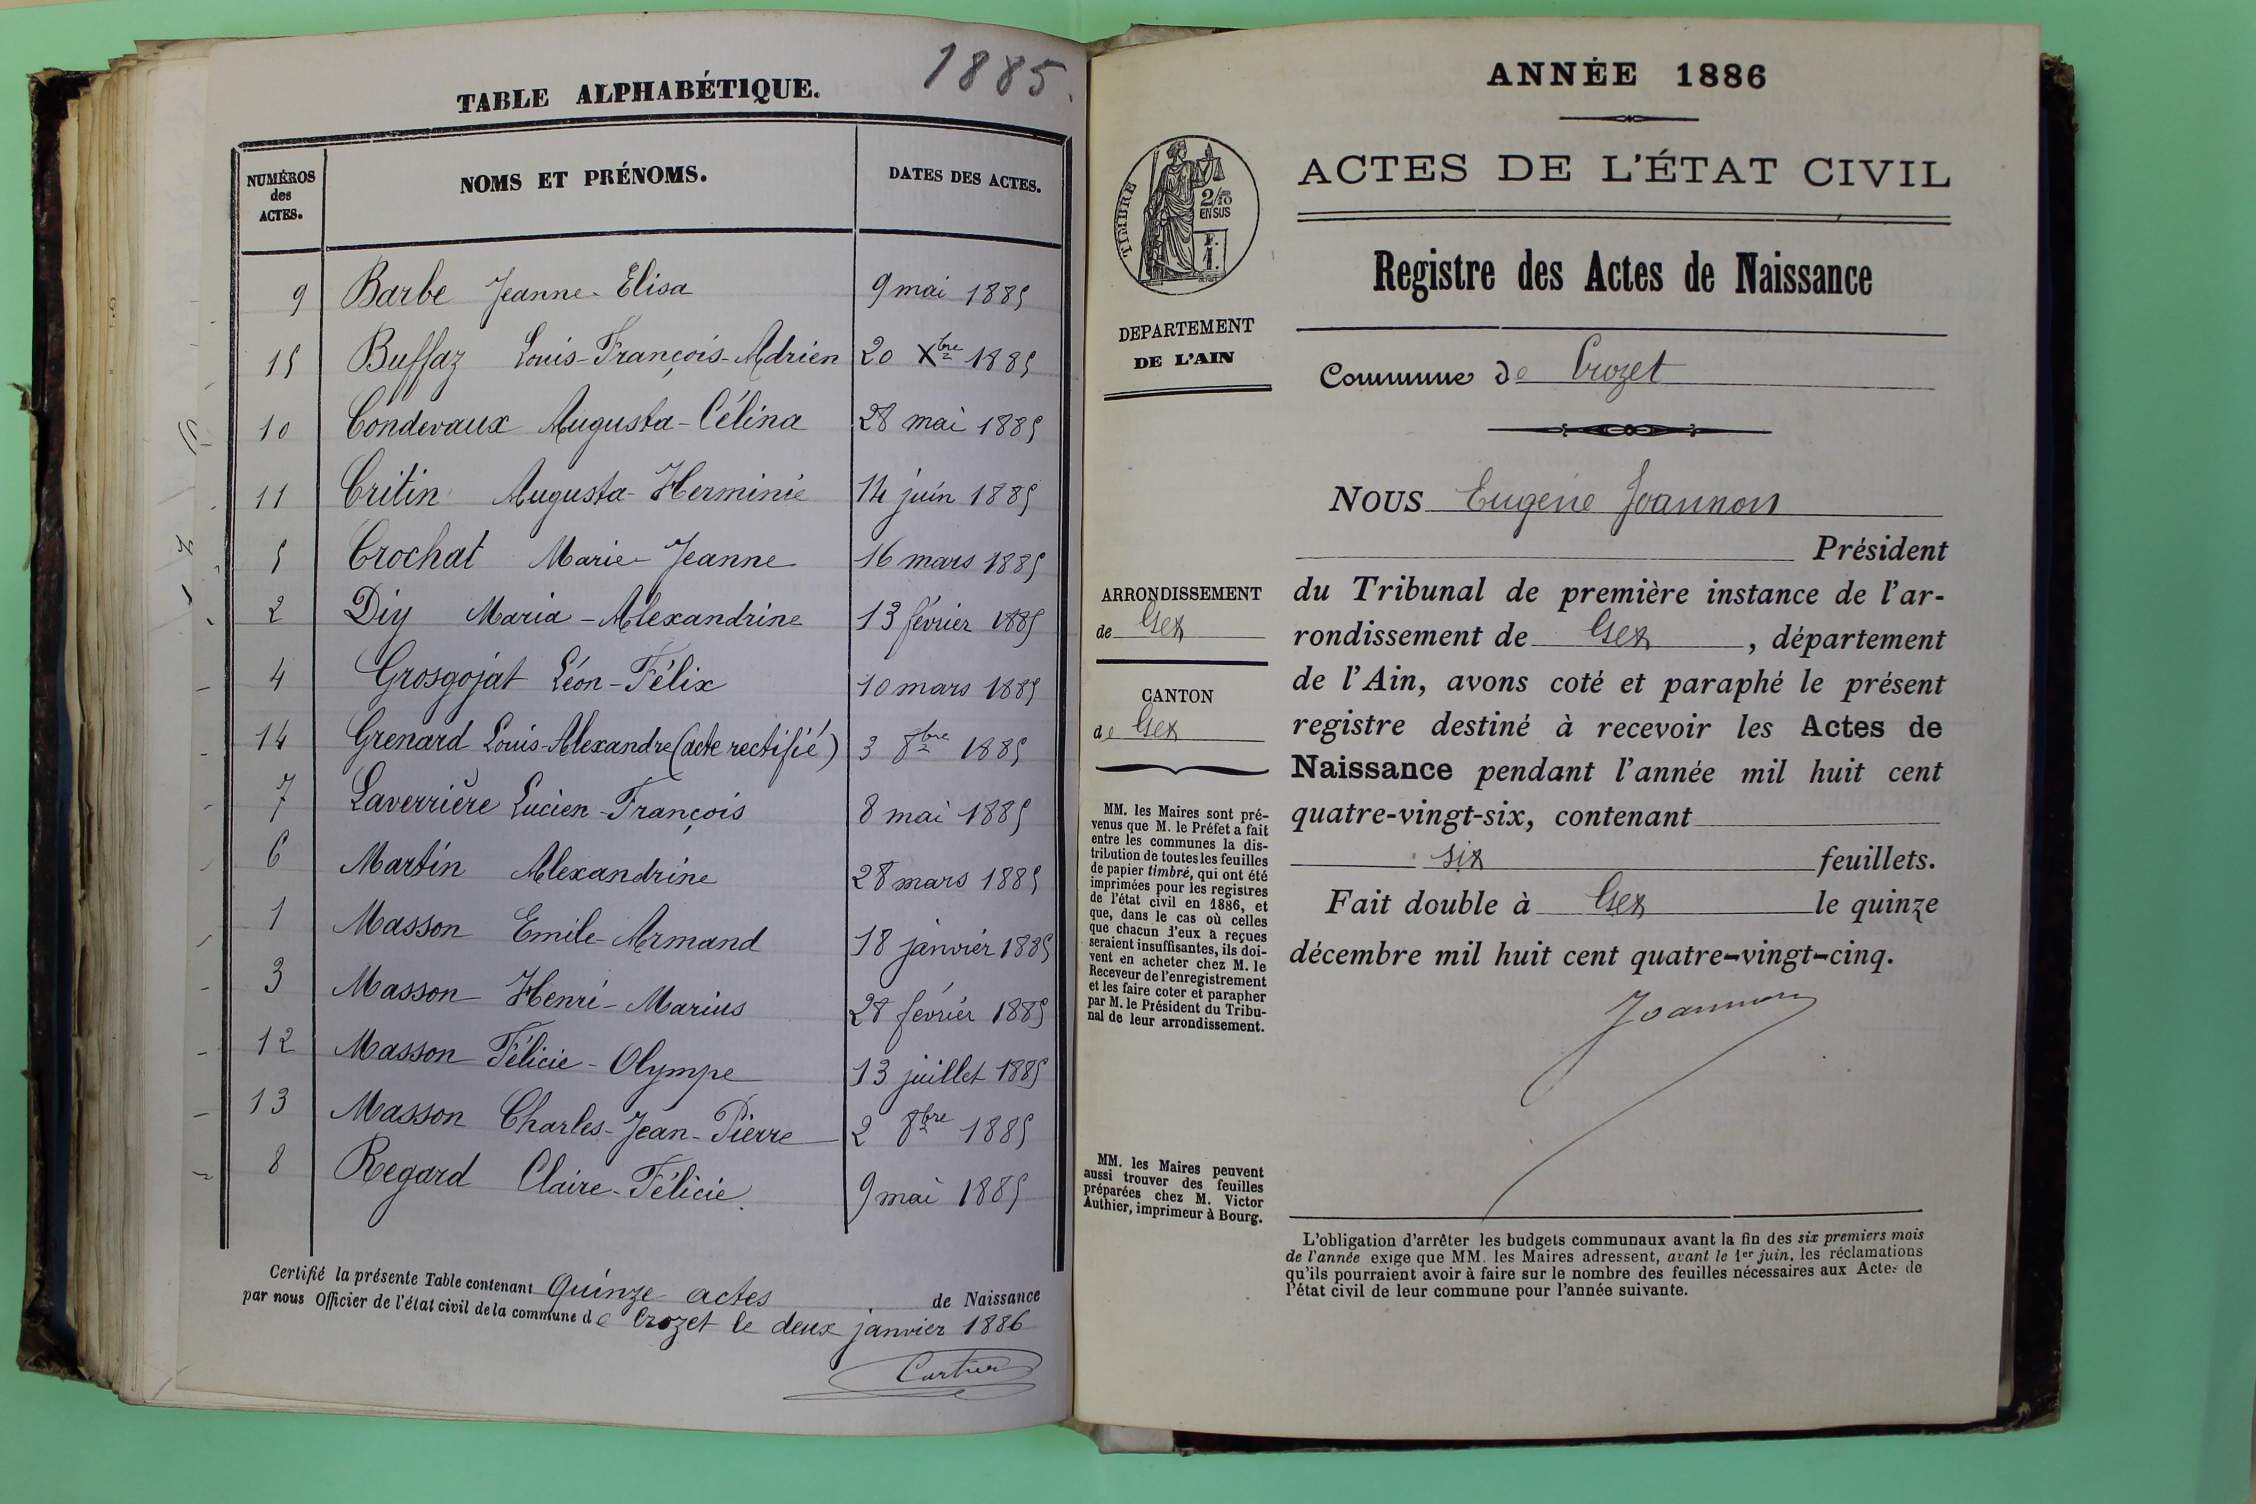 1885.
TABLE ALPHABÉTIQUE.
NUMÉROS des ACTES. NOMS ET PRÉNOMS. DATES DES ACTES.
9 Barbe Jeanne-Elisa 9 mai 1885
15 Buffaz Louis-François-Adrien 20 Xbre 1885
10 Condevaux Augusta-Célina 28 mai 1885
11 Critin Augusta-Herminie 14 juin 1885
5 Crochat Marie-Jeanne 16 mars 1885
2 Diy Maria-Alexandrine 13 février 1885
4 Grosgojat Léon-Félix 10 mars 1885
14 Grenard Louis-Alexandre (acte rectifié) 3 8bre 1885
7 Laverrière Lucien-François 8 mai 1885
6 Martin Alexandrine 28 mars 1885
1 Masson Emile-Armand 18 janvier 1885
3 Masson Henri-Marius 28 février 1885
12 Masson Félicie-Olympe 13 juillet 1885
13 Masson Charles-Jean-Pierre 2 8bre 1885
8 Regard Claire-Félicie. 9 mai 1885
Certifié la présente Table contenant Quinze actes de Naissance
par nous Officier de l'état civil de la commune de Crozet le deux janvier 1886
Cartier
ANNÉE 1886
ACTES DE L'ÉTAT CIVIL
TIMBRE
2/10
EN SUS
F.
1.
Registre des Actes de Naissance
DEPARTEMENT
DE L'AIN
Commune de Crozet
NOUS Eugène Joannon
Président
du Tribunal de première instance de l'ar-
rondissement de Gex, département
de l'Ain, avons coté et paraphé le présent
registre destiné à recevoir les Actes de
Naissance pendant l'année mil huit cent
quatre-vingt-six, contenant
six feuillets.
Fait double à Gex le quinze
décembre mil huit cent quatre-vingt-cinq.
Joannon
ARRONDISSEMENT
de Gex
CANTON
de Gex
MM. les Maires sont pré-
venus que M. le Préfet a fait
entre les communes la dis-
tribution de toutes les feuilles
de papier timbré, qui ont été
imprimées pour les registres
de l'état civil en 1886, et
que, dans le cas où celles
que chacun d'eux a reçues
seraient insuffisantes, ils doi-
vent en acheter chez M. le
Receveur de l'enregistrement
et les faire coter et parapher
par M. le Président du Tribu-
nal de leur arrondissement.
MM. les Maires peuvent
aussi trouver des feuilles
préparées chez M. Victor
Authier, imprimeur à Bourg.
L'obligation d'arrêter les budgets communaux avant la fin des six premiers mois
de l'année exige que MM. les Maires adressent, avant le 1er juin, les réclamations
qu'ils pourraient avoir à faire sur le nombre des feuilles nécessaires aux Actes de
l'état civil de leur commune pour l'année suivante.